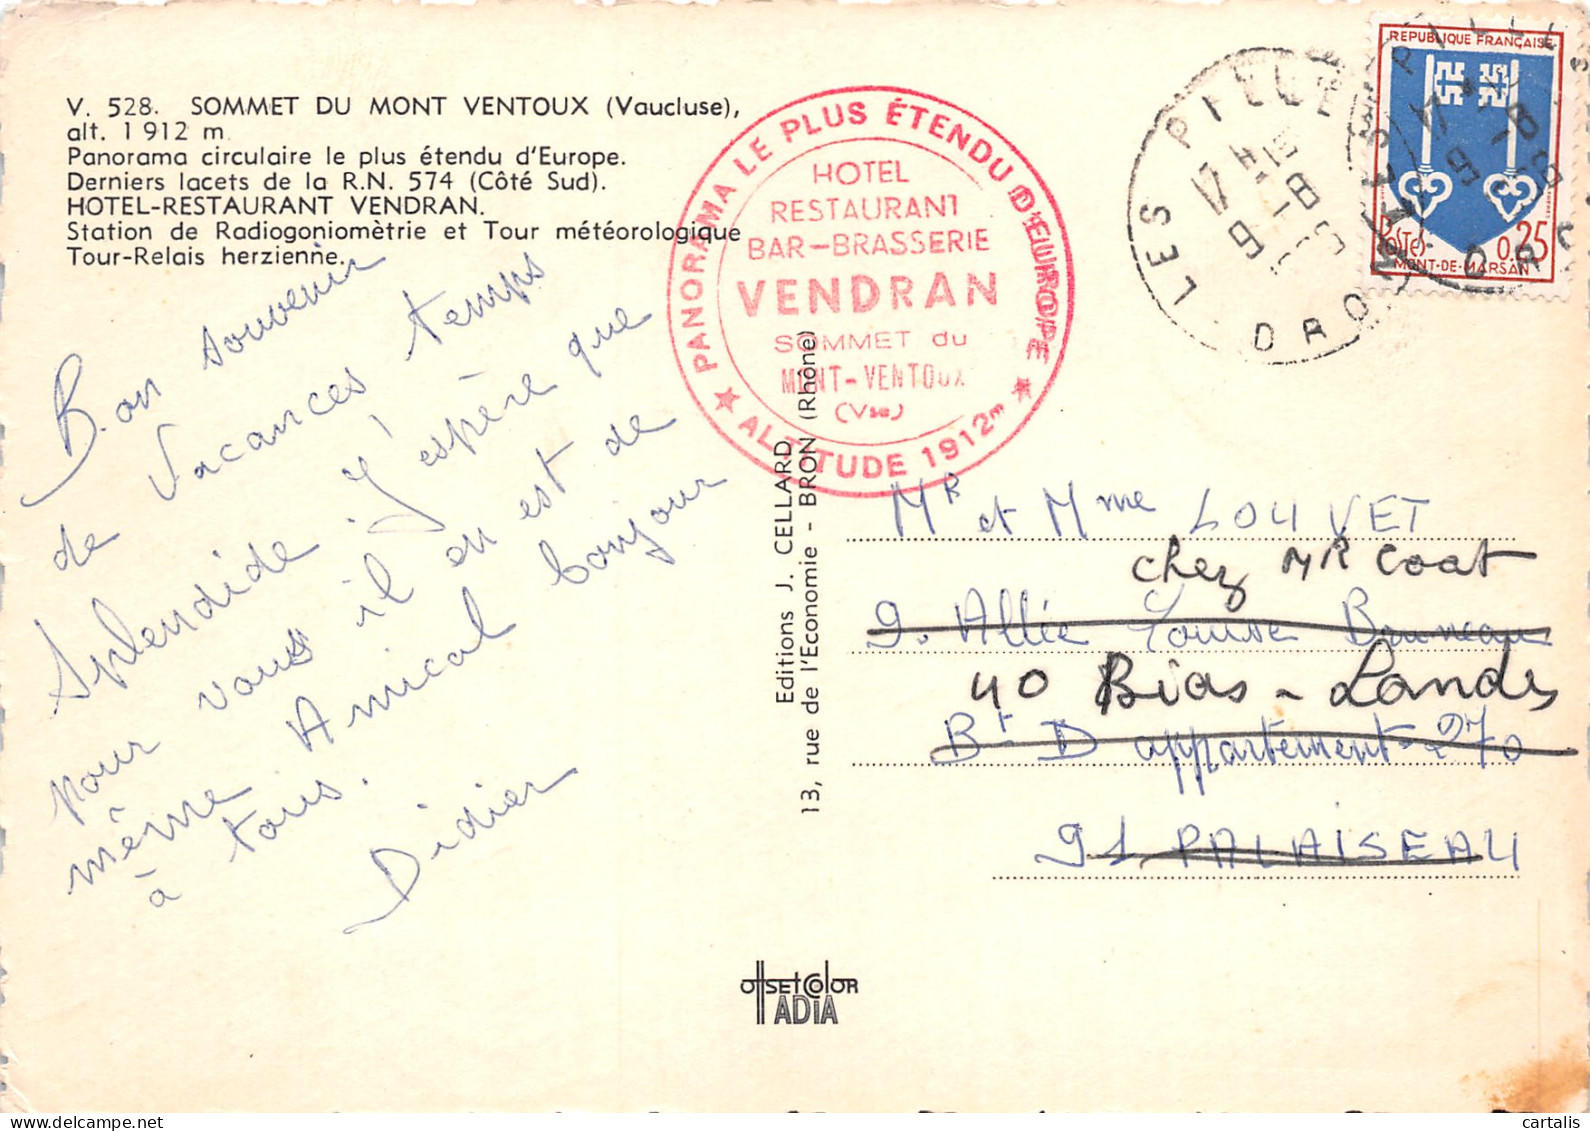 V. 528. SOMMET DU MONT VENTOUX (Vaucluse),
alt. 1 912 m
Panorama circulaire le plus étendu d'Europe.
Derniers lacets de la R.N. 574 (Côté Sud).
HOTEL-RESTAURANT VENDRAN.
Station de Radiogoniomètrie et Tour météorologique
Tour-Relais herzienne.
Bon souvenir
de Vacances temps
Splendide j'espère que
pour vous il en est de
même Amical bonjour
à tous.
Didier
PANORAMA LE PLUS ÉTENDU D'EUROPE
HOTEL
RESTAURANT
BAR-BRASSERIE
VENDRAN
SOMMET du
MONT-VENTOUX
(Vse)
★ ALTITUDE 1912m ★
Editions J. CELLARD
13, rue de l'Economie - BRON (Rhône)
LES PILLES
17 H
9-8
DROME
LES PILLES
17 H
9-8
DROME
REPUBLIQUE FRANÇAISE
POSTES 0,25
MONT-DE-MARSAN
Mr et Mme LOUVET
chez MR Coat
9. Allée Louise Bruneau
40 Bias - Landes
Bt D appartement 270
91 PALAISEAU
OffsetColor
ADIA
cartalis